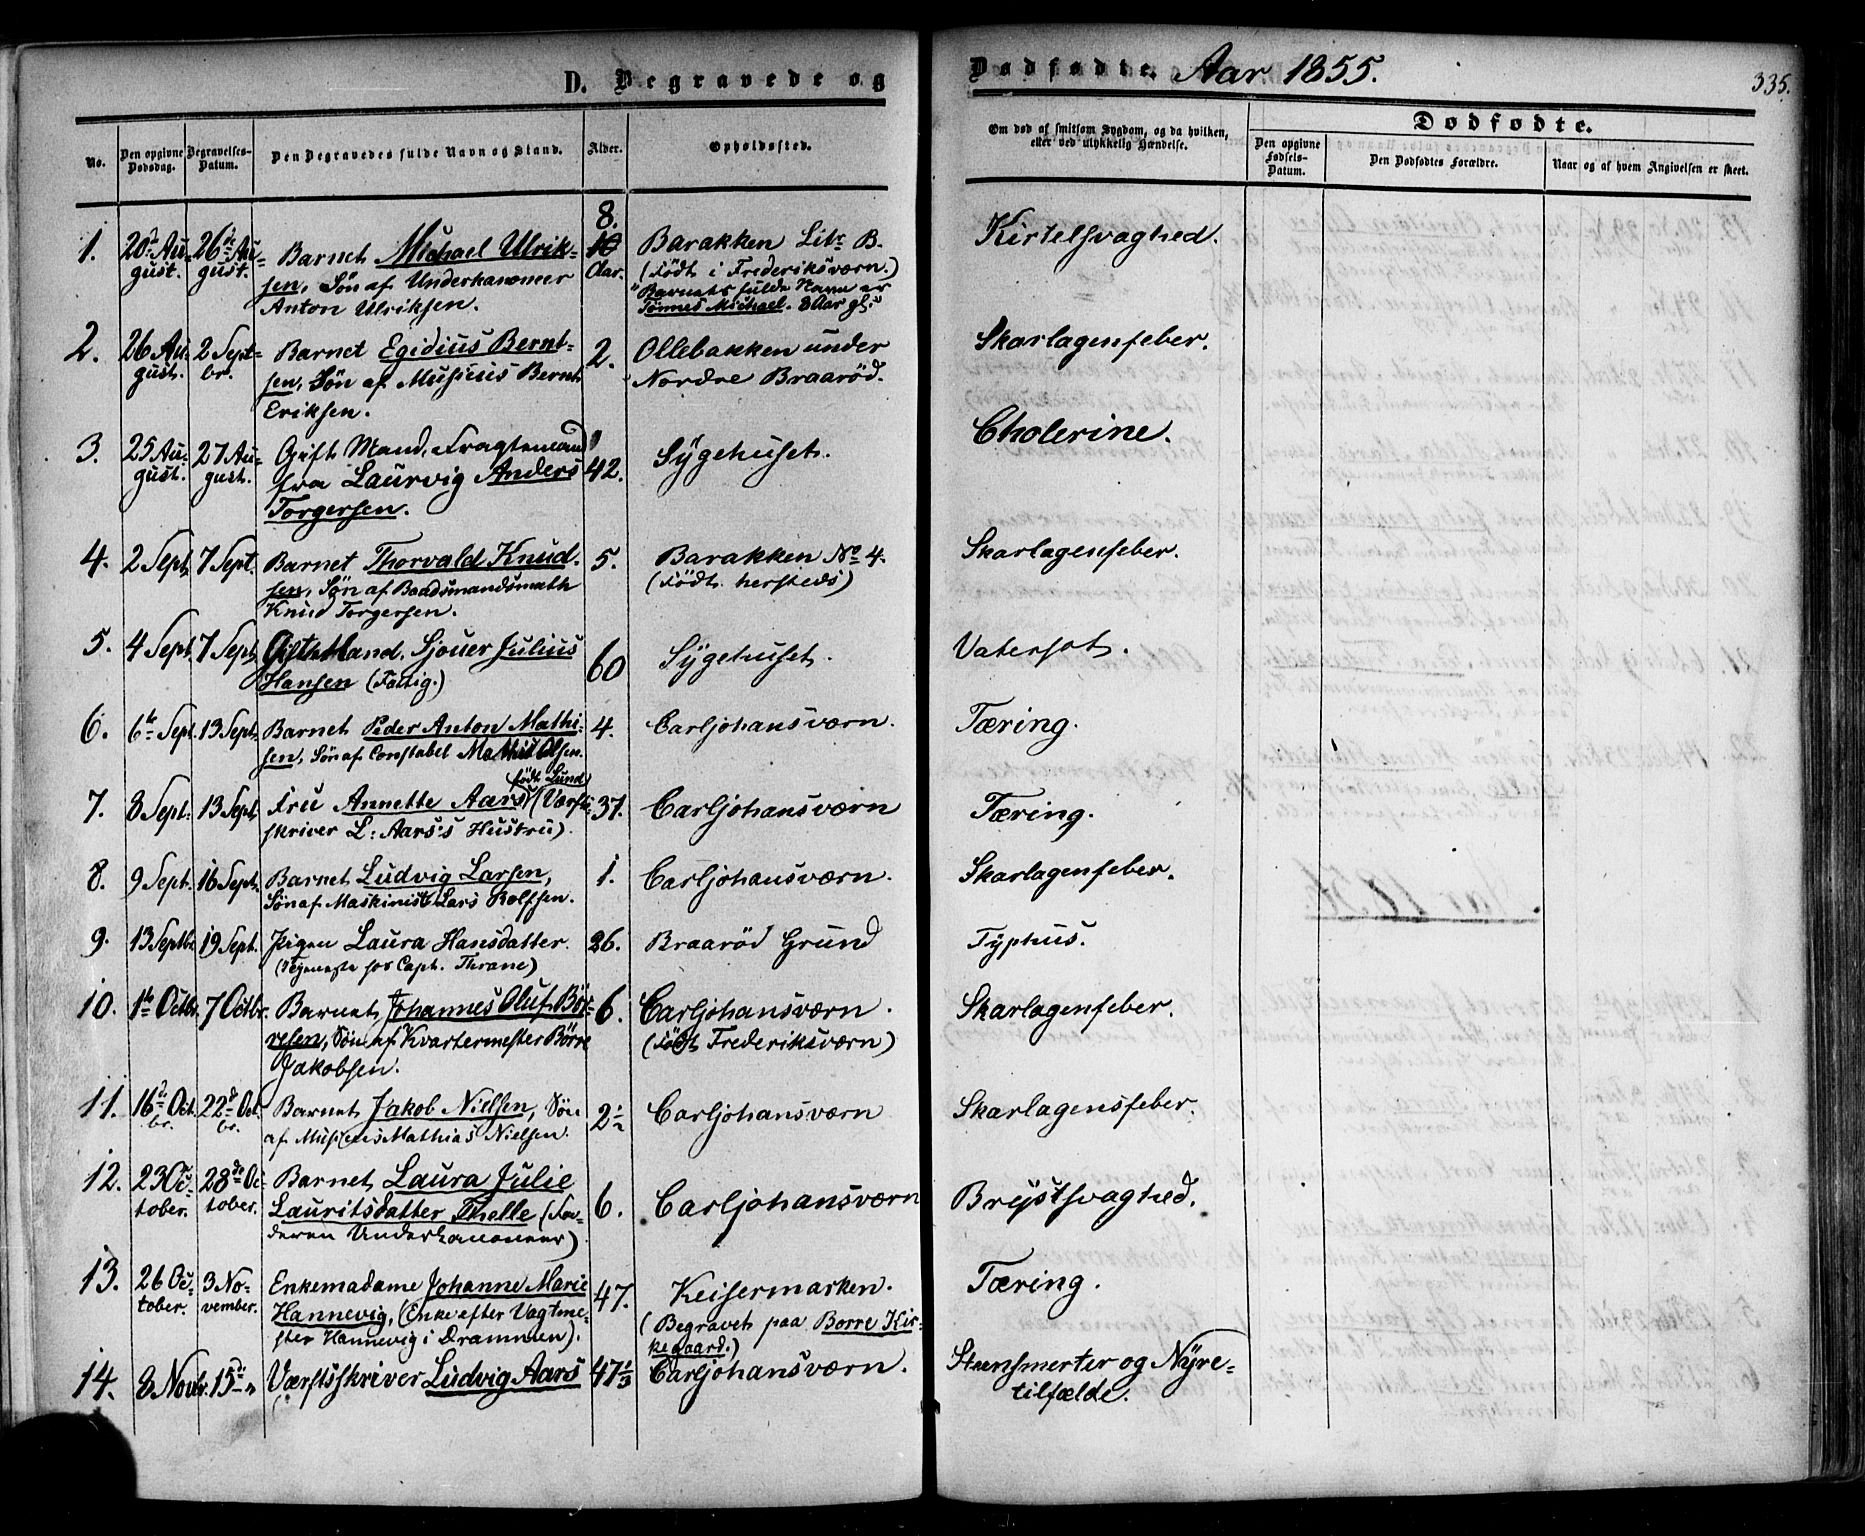 D. Begravede og
Dødfødte. Aar 1855.
335.
No.
Den opgivne Dødsdag.
Begravelses-Datum.
Den Begravedes fulde Navn og Stand.
Alder.
Opholdssted.
Om død af smitsom Sygdom, og da hvilken,
eller ved ulykkelig Hændelse.
Dødfødte.
Den opgivne Fødsels-Datum.
Den Dødfødtes Forældre.
Naar og af hvem Angivelsen er skeet.
1. 20de Au-gust. 26de Au-gust.
Barnet Michael Ulrik-
sen, Søn af Underkanoneer
Anton Ulriksen.
8.
10
Aar.
Barakken Litr. B.
(Født i Frederiksværn.)
"Barnets fulde Navn er
Tønnes Michael. 8 Aar gl."
Kirtelsvaghed.
2. 26 Au-gust. 2 Sept-br.
Barnet Egidius Bernt-
sen, Søn af Musicus Bernt
Eriksen.
2.
Ollebakken under
Nordre Braarød.
Skarlagensfeber.
3. 25 Au-gust. 27 Au-gust.
Gift Mand, Fragtemand
fra Laurvig Anders
Torgersen.
42.
Sygehuset.
Cholerine.
4. 2 Sept. 7 Sept.
Barnet Thorvald Knud-
sen, Søn af Baadsmandsmath
Knud Torgersen.
5.
Barakken No 4.
(Født hersteds)
Skarlagensfeber.
5. 4 Sept. 7 Sept.
Gift Mand, Sjouer Julius
Hansen (Fattig.)
60
Sygehuset.
Vatersot.
6. 6te Sept. 13 Sept.
Barnet Peder Anton Mathi-
sen, Søn af Constabel Mathis Olsen.
4.
Carljohansværn.
Tæring.
7. 8 Sept. 13 Sept.
født Lund
Fru Annette Aars (Værfts-
skriver L: Aars's Hustru).
37.
Carljohansværn
Tæring.
8. 9 Sept. 16 Sept.
Barnet Ludvig Larsen,
Søn af Maskinist Lars Rolfsen.
1.
Carljohansværn.
Skarlagensfeber.
9. 13 Septbr 19 Sept.
Pigen Laura Hansdatter.
(Tjeneste hos Capt. Thrane)
26.
Braarød Grund
Typhus.
10. 1te Octbr. 7 Octbr.
Barnet Johannes Oluf Bør-
resen, Søn af Kvartermester Børre
Jakobsen.
6.
Carljohansværn.
(Født Frederiksværn)
Skarlagensfeber.
11. 16de Oct.br. 22de Oct.br.
Barnet Jakob Nielsen, Søn
af Musicus Mathias Nielsen.
2
Carljohansværn
Skarlagensfeber.
12. 23 Oc-tober. 28de Oc-tober.
Barnet Laura Julie
Lauritsdatter Thelle (Fa-
deren Underkanoneer)
6.
Carljohansværn
Brystsvaghed.
13. 26 Oc-tober. 3 No-vember.
Enkemadame Johanne Marie
Hannevig, (Enke efter Vagtme-
ster Hannevig i Drammen).
47.
Keisermarken.
(Begravet paa Borre Kir-
kegaard.)
Tæring.
14. 8 Novbr. 15de "
Værftsskriver Ludvig Aars
47 1/3
Carljohansværn.
Steensmerter og Nyre-
tilfælde.